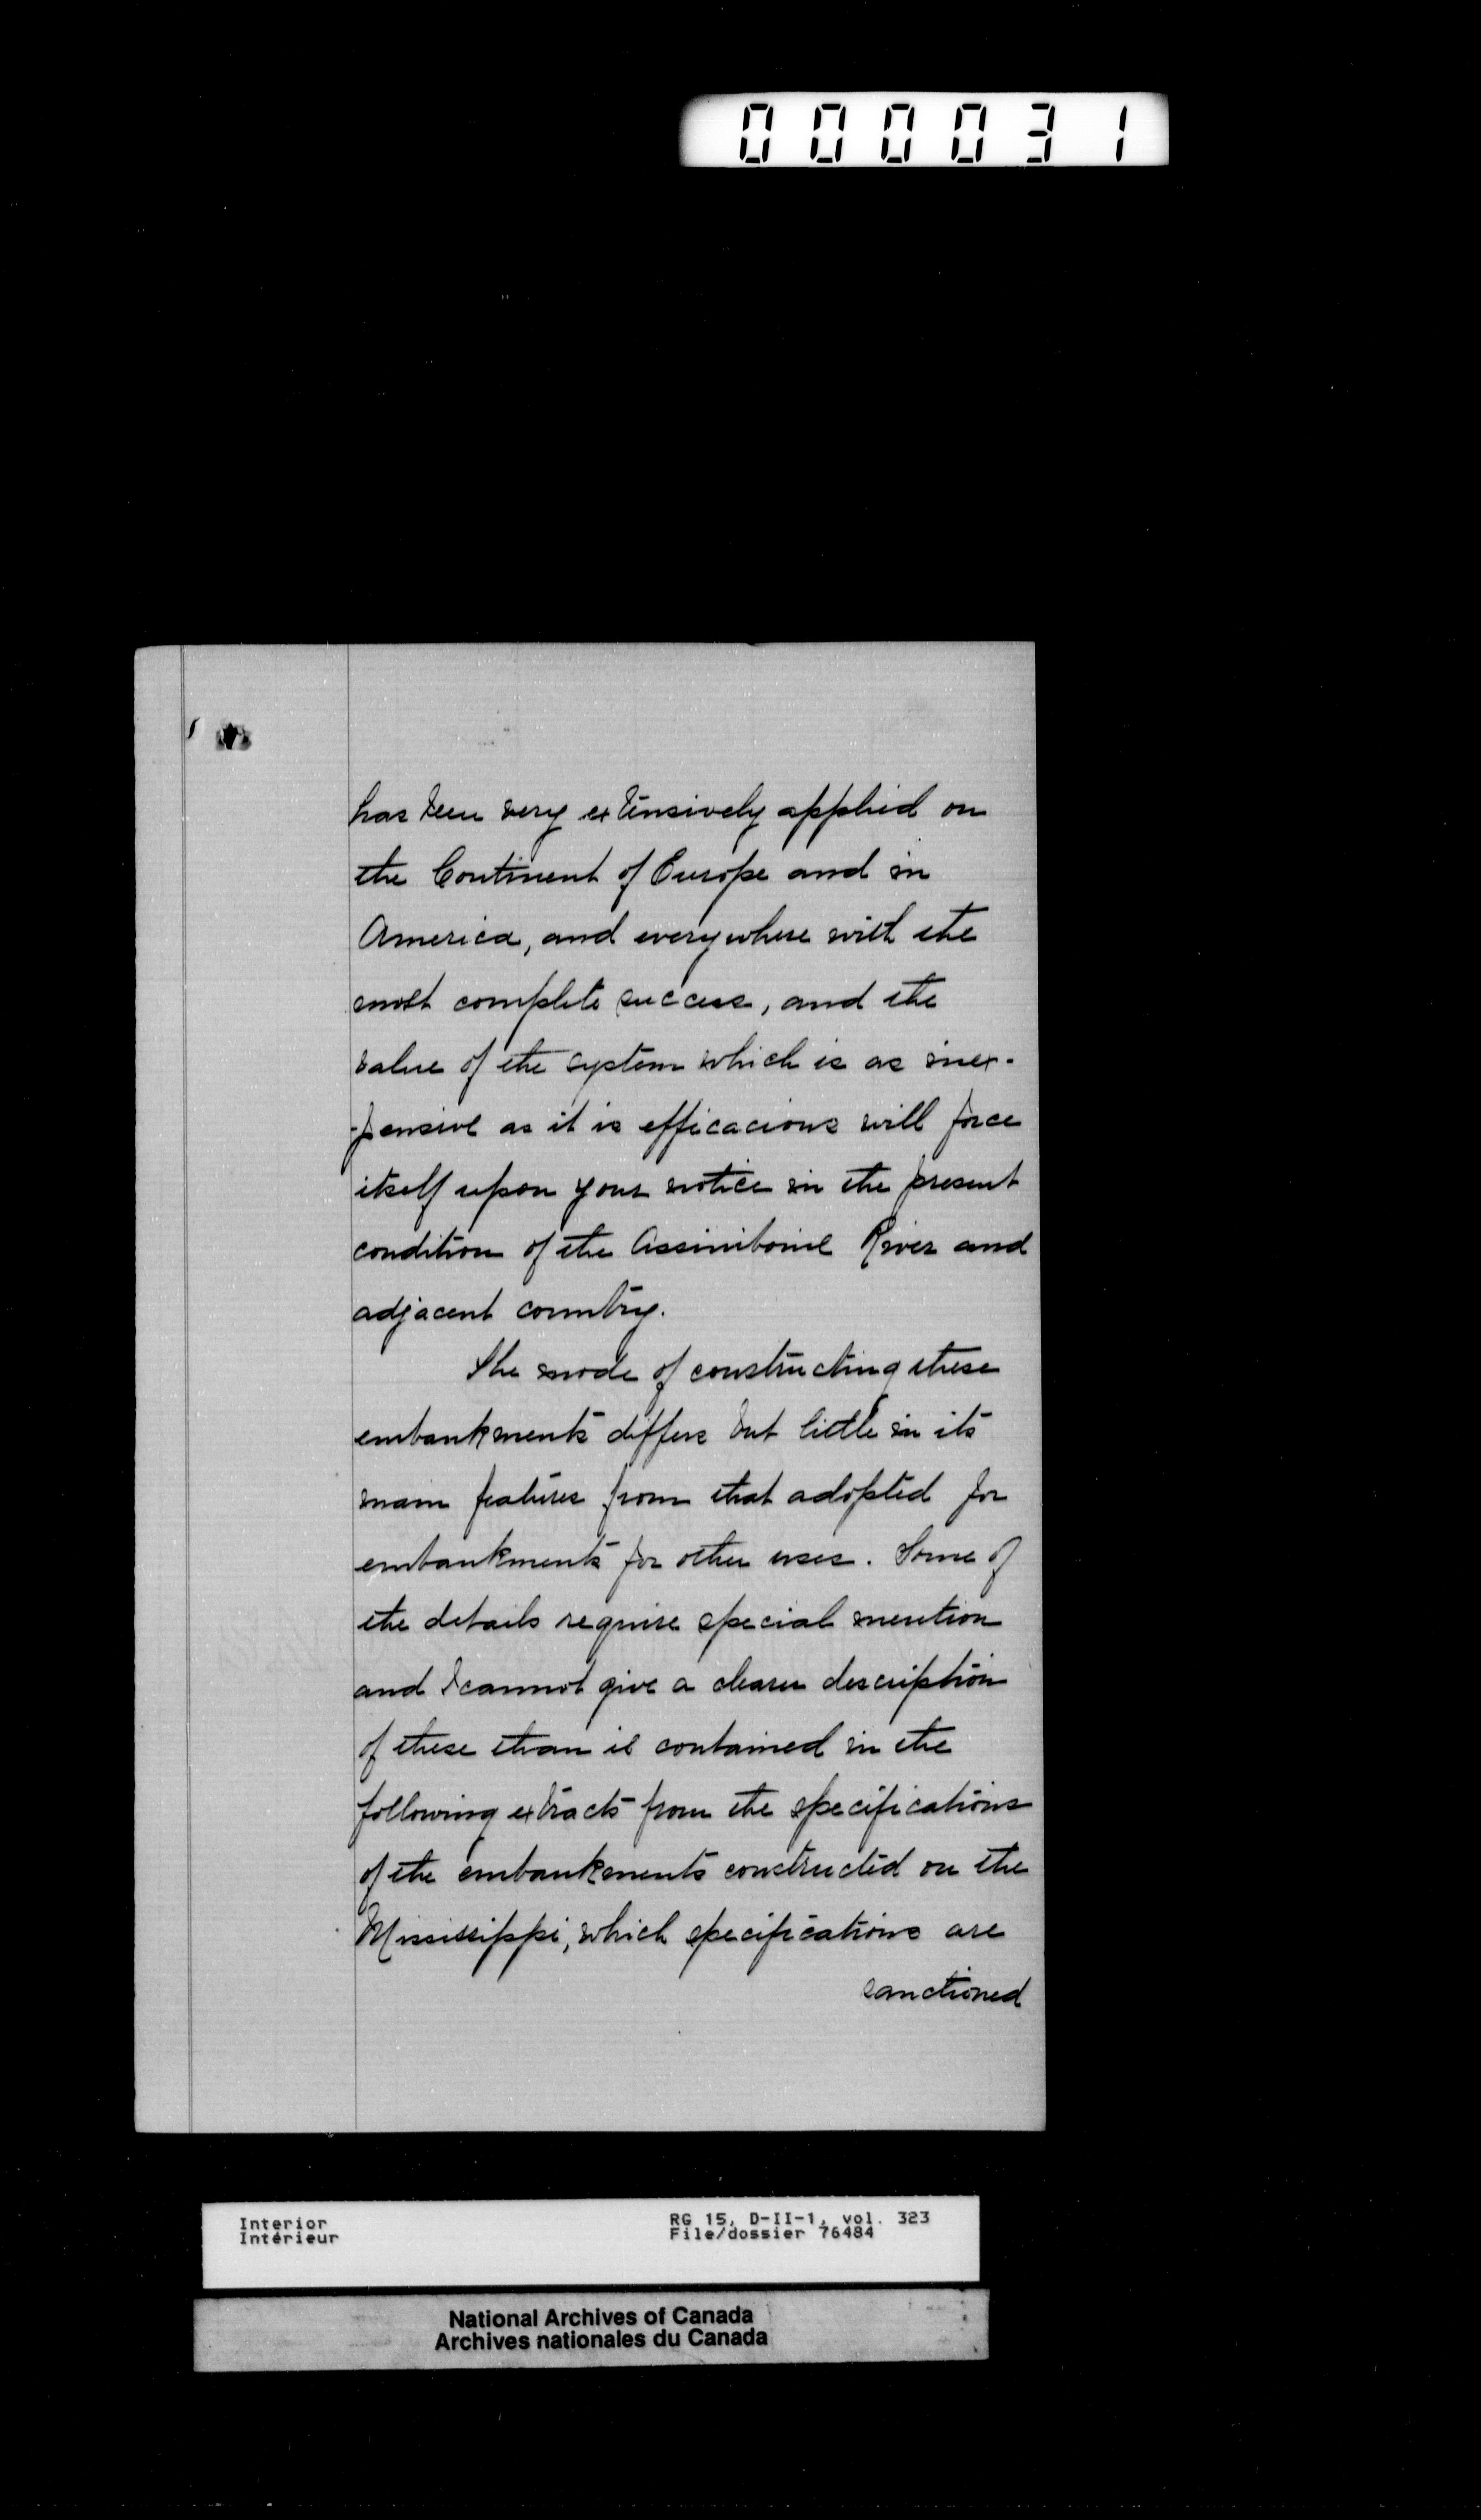 000031
has been very extensively applied on
the Continent of Europe and in
America, and everywhere with the
most complete success, and the
value of the system which is as inex-
-pensive as it is efficacious will force
itself upon your notice in the present
condition of the Assiniboine River and
adjacent country.
The mode of constructing these
embankments differs but little in its
main features from that adopted for
embankments for other uses. Some of
the details require special mention
and I cannot give a clearer description
of these than is contained in the
following extracts from the specifications
of the embankments constructed on the
Mississippi, which specifications are
sanctioned
Interior RG 15, D-II-1, vol. 323
Intérieur File/dossier 76484
National Archives of Canada
Archives nationales du Canada